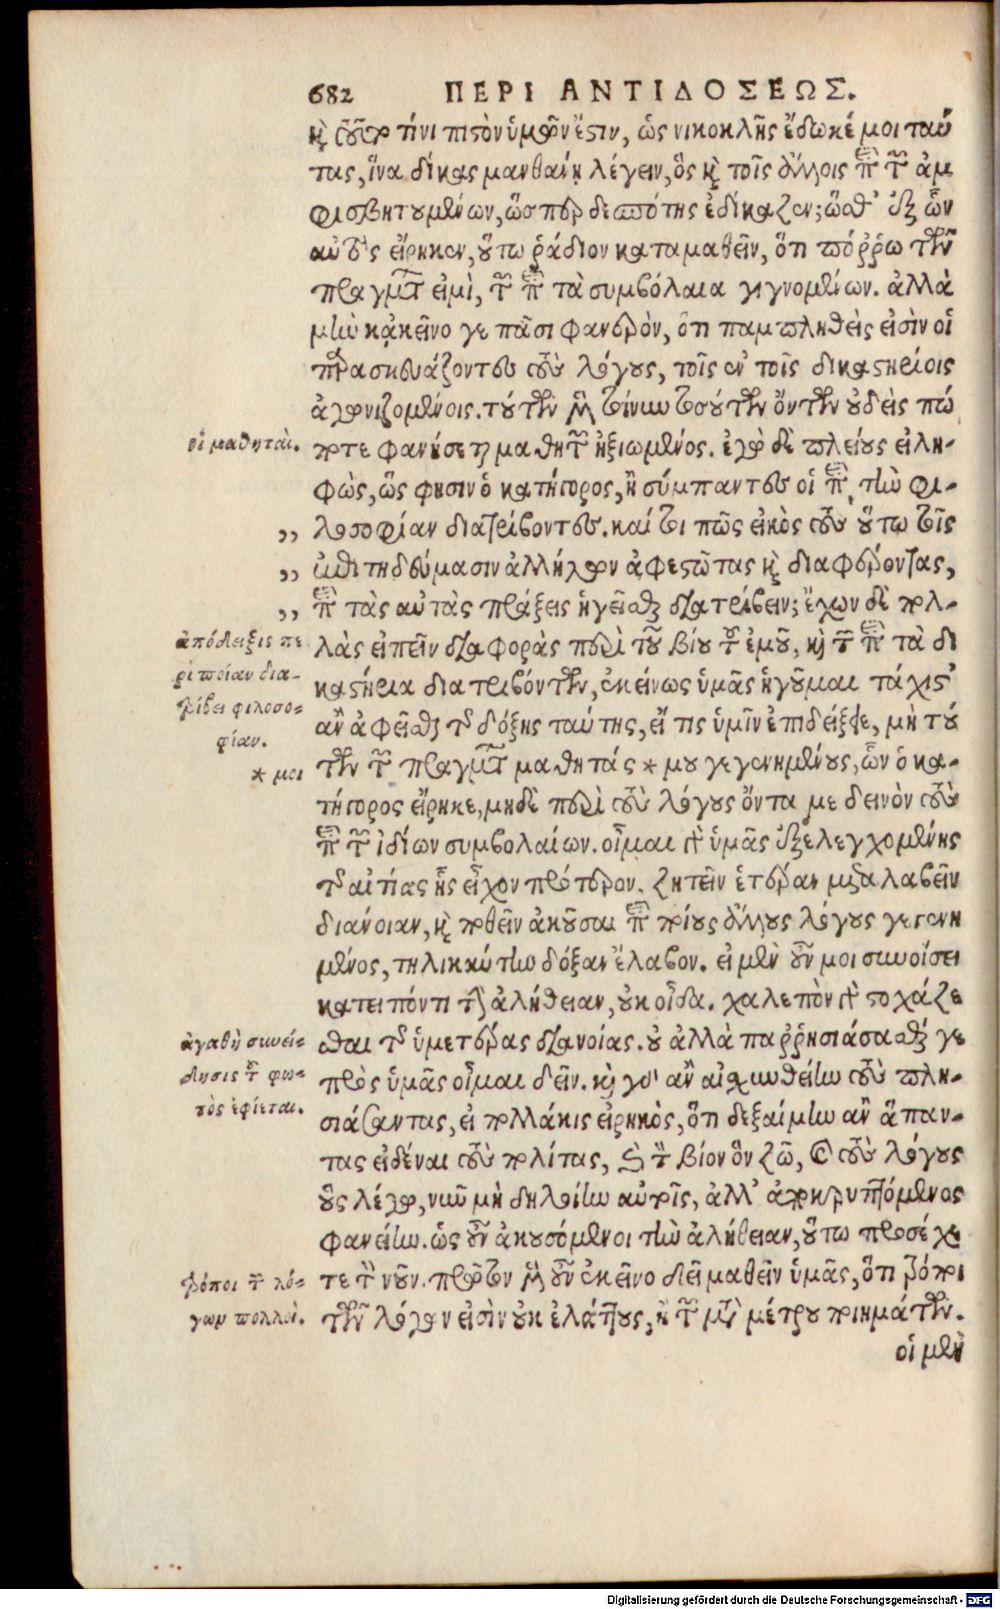 682 ΠΕΡΙ ΑΝΤΙΔΟΣΕΩΣ.
καὶ τοῦτο τίνι πιστὸν ὑμῶν ἔστιν, ὡς νικοκλῆς ἔδωκέ μοι ταύ
τας, ἵνα δίκας μανθάνῃ λέγειν, ὃς καὶ τοῖς ἄλλοις περὶ τῶν ἀμ
φισβητουμένων, ὥσπερ δεσπότης ἐδίκαζεν; ὥσθ' ἐξ ὧν
αὐτὸς εἴρηκεν, οὕτω ῥάδιον καταμαθεῖν, ὅτι πόῤῥω τῶν
πραγμάτων εἰμὶ, τῶν περὶ τὰ συμβόλαια γιγνομένων. ἀλλὰ
μὴν κἀκεῖνο γε πᾶσι φανερὸν, ὅτι παμπληθεῖς εἰσὶν οἱ
παρασκευάζοντες τοὺς λόγους, τοῖς ἐν τοῖς δικαστηρίοις
ἀγωνιζομένοις. τούτων μὲν τοίνυν τοσούτων ὄντων οὐδεὶς πώ
οἱ μαθηταὶ.
ποτε φανήσεται μαθητῶν ἠξιωμένος. ἐγὼ δὲ πλείους εἰλη-
φὼς, ὥς φησιν ὁ κατήγορος, ἢ σύμπαντες οἱ περὶ τὴν φι-
,, λοσοφίαν διατρίβοντες. καί τοι πῶς εἰκὸς τοὺς οὕτω τοῖς
,, ἐπιτηδεύμασιν ἀλλήλων ἀφεστῶτας καὶ διαφέροντας,
,, περὶ τὰς αὐτὰς πράξεις ἡγεῖσθαι διατρίβειν; ἔχων δὲ πολ-
ἀπόδειξις πε
λὰς εἰπεῖν διαφορὰς περὶ τοῦ βίου τοῦ ἐμοῦ, καὶ τῶν περὶ τὰ δι
ρὶ ποίαν δια-
καστήρια διατριβόντων, ἐκείνως ὑμᾶς ἡγοῦμαι τάχιστ'
τρίβει φιλοσο-
ἂν ἀφεῖσθαι τῆς δόξης ταύτης, εἴ τις ὑμῖν ἐπιδείξειε, μὴ τού
φίαν.
των τῶν πραγμάτων μαθητάς * μου γεγενημένους, ὧν ὁ κα-
* μοι
τήγορος εἴρηκε, μηδὲ περὶ τοὺς λόγους ὄντα με δεινὸν τοὺς
περὶ τῶν ἰδίων συμβολαίων. οἶμαι δ' ὑμᾶς ἐξελεγχομένης
τῆς αἰτίας ἧς εἶχον πρότερον, ζητεῖν ἑτέραν μεταλαβεῖν
διάνοιαν, καὶ ποθεῖν ἀκοῦσαι περὶ ποίους ἄλλους λόγους γεγενη
μένος, τηλικαύτην δόξαν ἔλαβον. εἰ μὲν οὖν μοι συνοίσει
κατειπόντι τὴν ἀλήθειαν, οὐκ οἶδα. χαλεπὸν δὲ στοχάζε
ἀγαθὴ συνεί-
σθαι τῆς ὑμετέρας διανοίας. οὐ ἀλλὰ παῤῥησιάσασθαί γε
δησις τοῦ φω-
πρὸς ὑμᾶς οἶμαι δεῖν. καὶ γὰρ ἂν αἰσχυνθείην τοὺς πλη-
τὸς ἐφίεται.
σιάσαντας, εἰ πολλάκις εἰρηκὼς, ὅτι δεξαίμην ἂν ἅπαν-
τας εἰδέναι τοὺς πολίτας, καὶ τὸν βίον ὃν ζῶ, καὶ τοὺς λόγους
οὓς λέγω, νῦν μὴ δηλοίην αὐτοῖς, ἀλλ' ἀποκρυπτόμενος
φανείην. ὡς οὖν ἀκουσόμενοι τὴν ἀλήθειαν, οὕτω προσέχε
τρόποι τῶν λό-
τε τὸν νοῦν. πρῶτον μὲν οὖν ἐκεῖνο δεῖ μαθεῖν ὑμᾶς, ὅτι τρόποι
γων πολλοί.
τῶν λόγων εἰσὶν οὐκ ἐλάττους, ἢ τῶν μετὰ μέτρου ποιημάτων.
οἱ μὲν
Digitalisierung gefördert durch die Deutsche Forschungsgemeinschaft - DFG